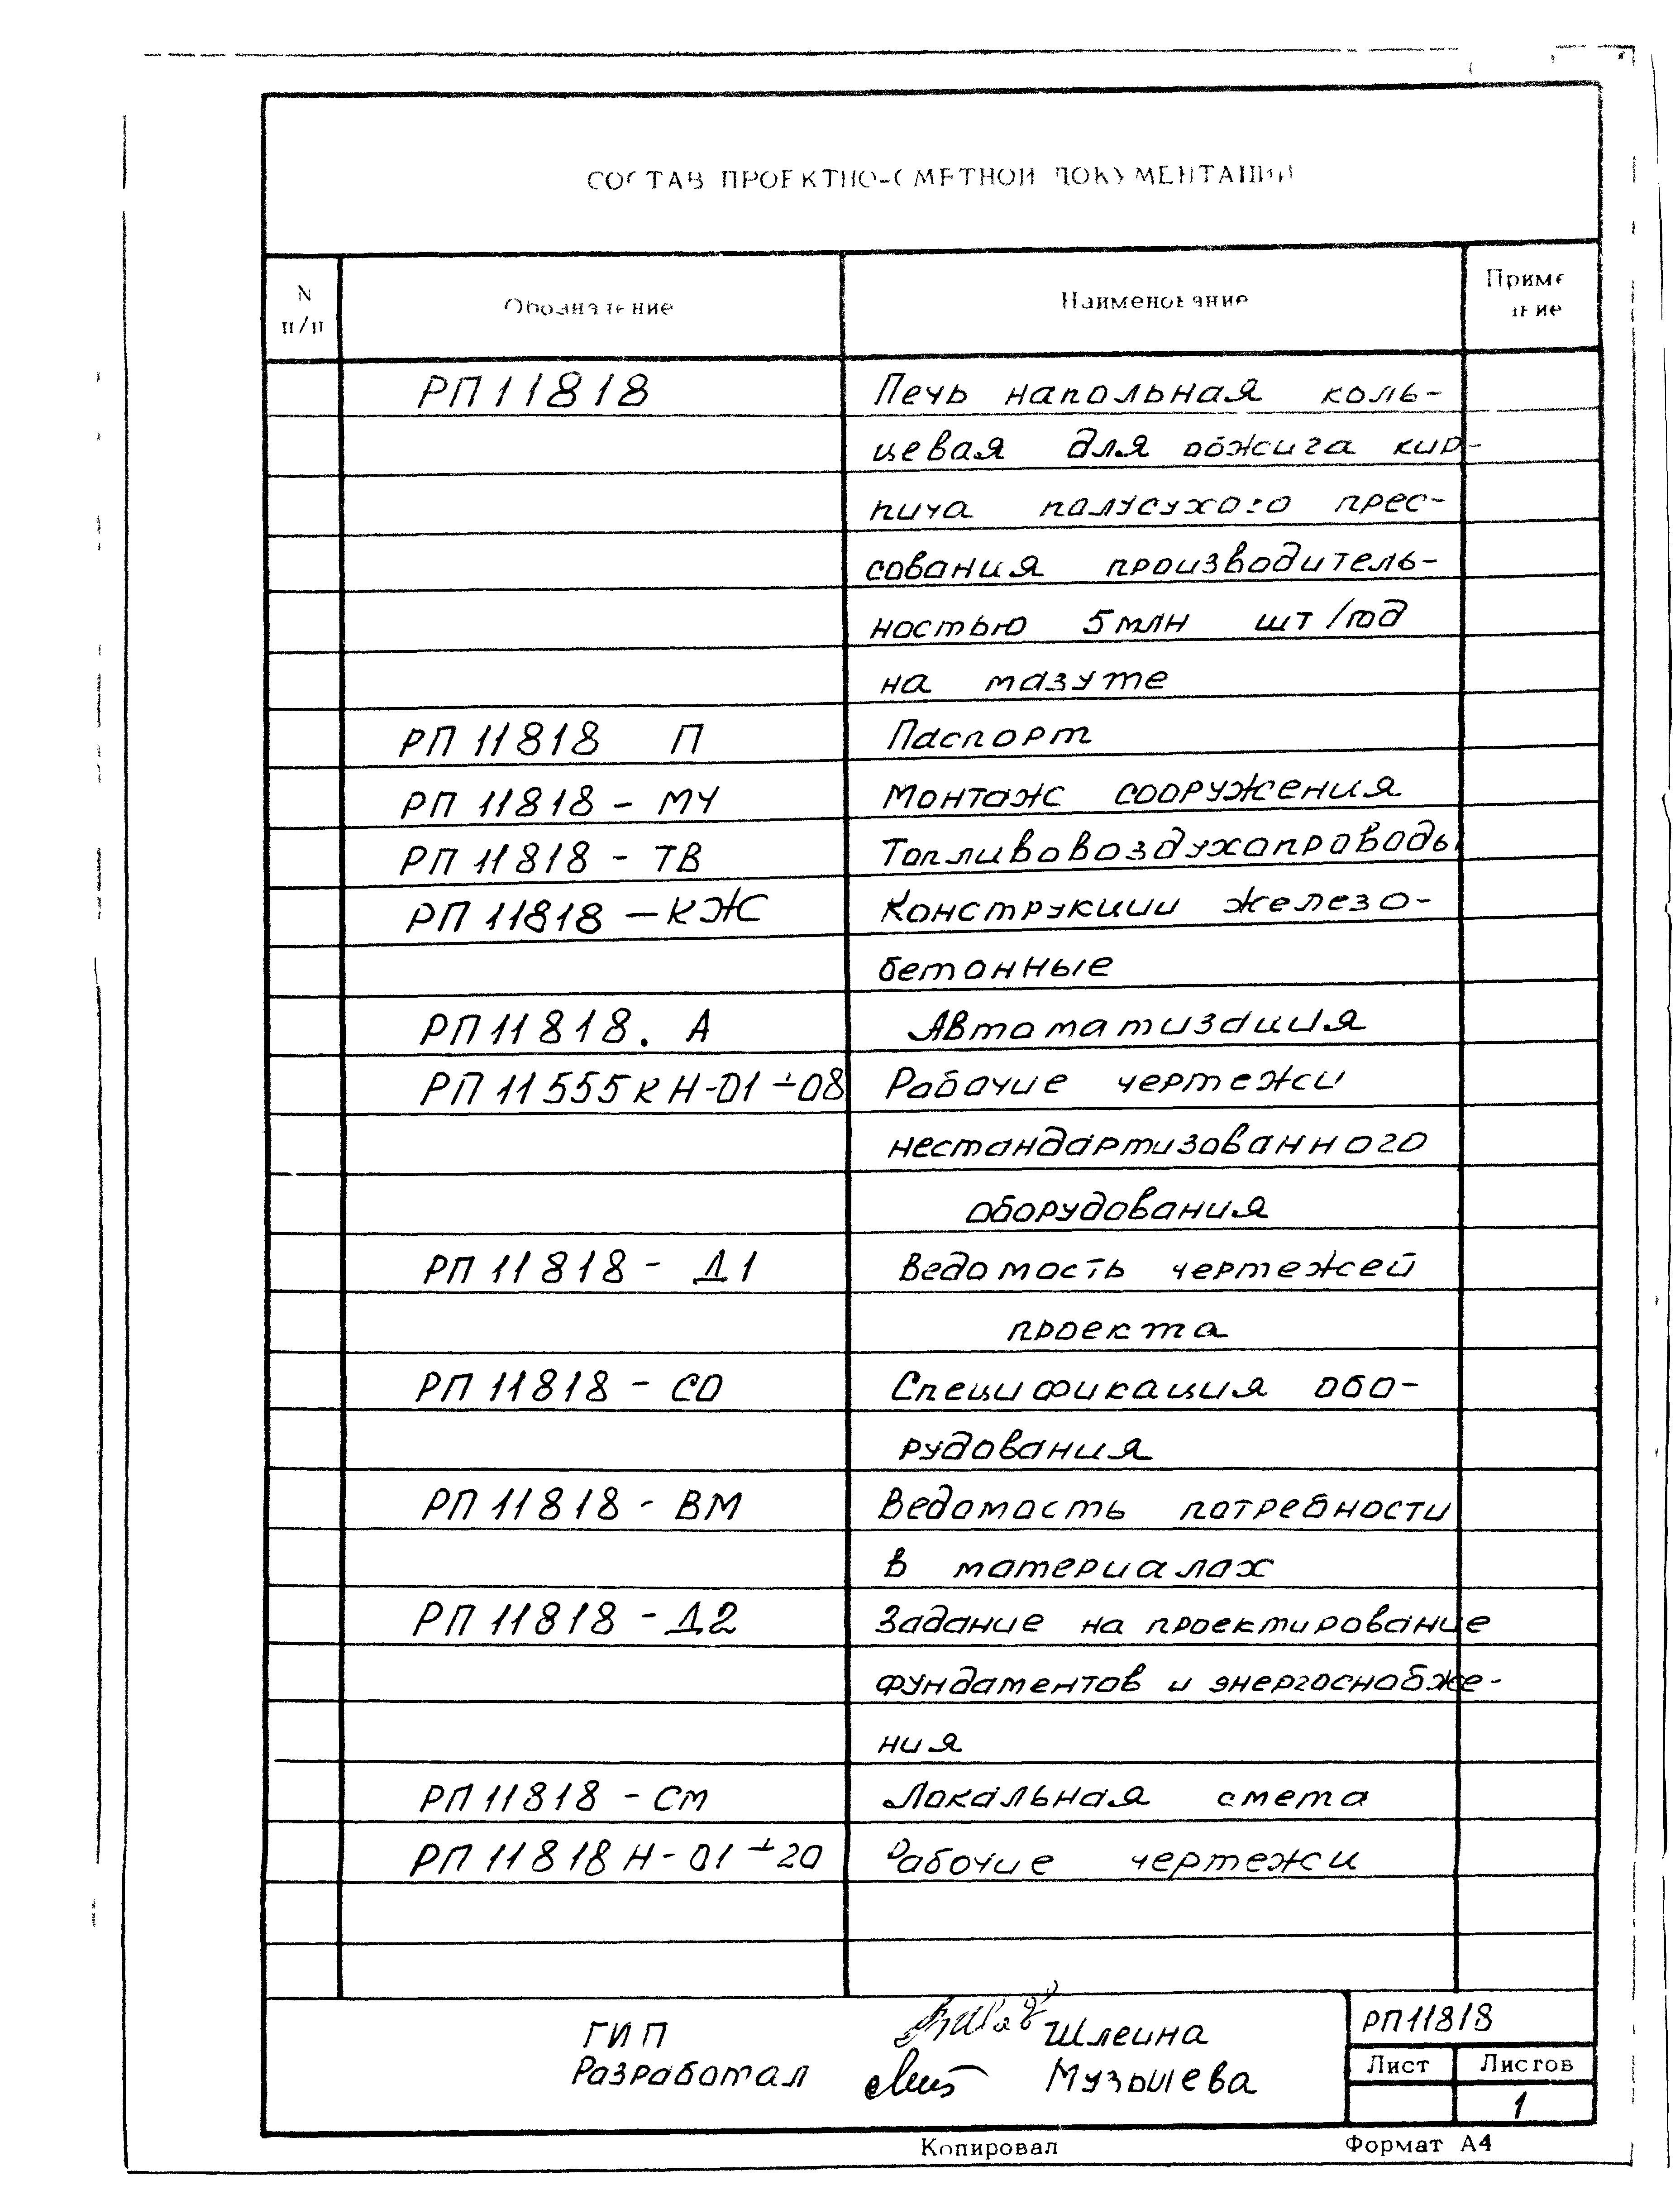 СОСТАВ ПРОЕКТНО-СМЕТНОЙ ДОКУМЕНТАЦИИ
N п/п Обозначение Наименование Приме ание
РП11818 Печь напольная коль-
цевая для обжига кир-
пича полусухого прес-
сования производитель-
ностью 5 млн шт/год
на мазуте
РП 11818 П Паспорт
РП 11818 - МЧ Монтаж сооружения
РП 11818 - ТВ Топливовоздухопроводы
РП 11818 - КЖ Конструкции железо-
бетонные
РП 11818. А Автоматизация
РП 11555КН-01÷08 Рабочие чертежи
нестандартизованного
оборудования
РП 11818 - Д1 Ведомость чертежей
проекта
РП 11818 - СО Спецификация обо-
рудования
РП 11818 - ВМ Ведомость потребности
в материалах
РП 11818 - Д2 Задание на проектирование
фундаментов и энергоснабже-
ния
РП 11818 - См Локальная смета
РП 11818Н-01÷20 Рабочие чертежи
ГИП Шлеина РП11818
Разработал Музышева Лист Листов
1
Копировал Формат А4